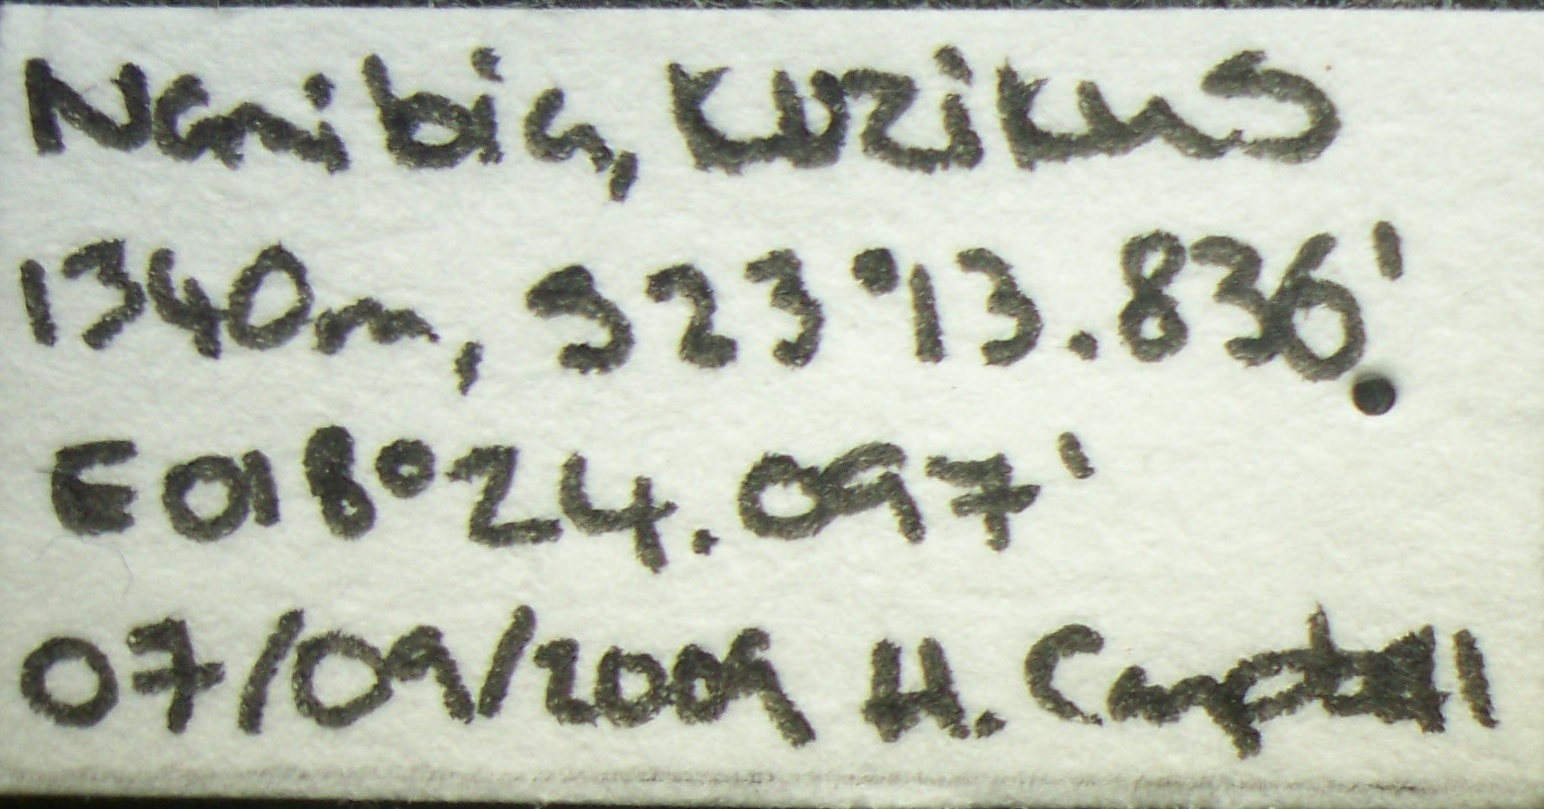 Namibia, Kuzikus
1340m, S23°13.836'
E018°24.097'
07/09/2009 H. Campbell